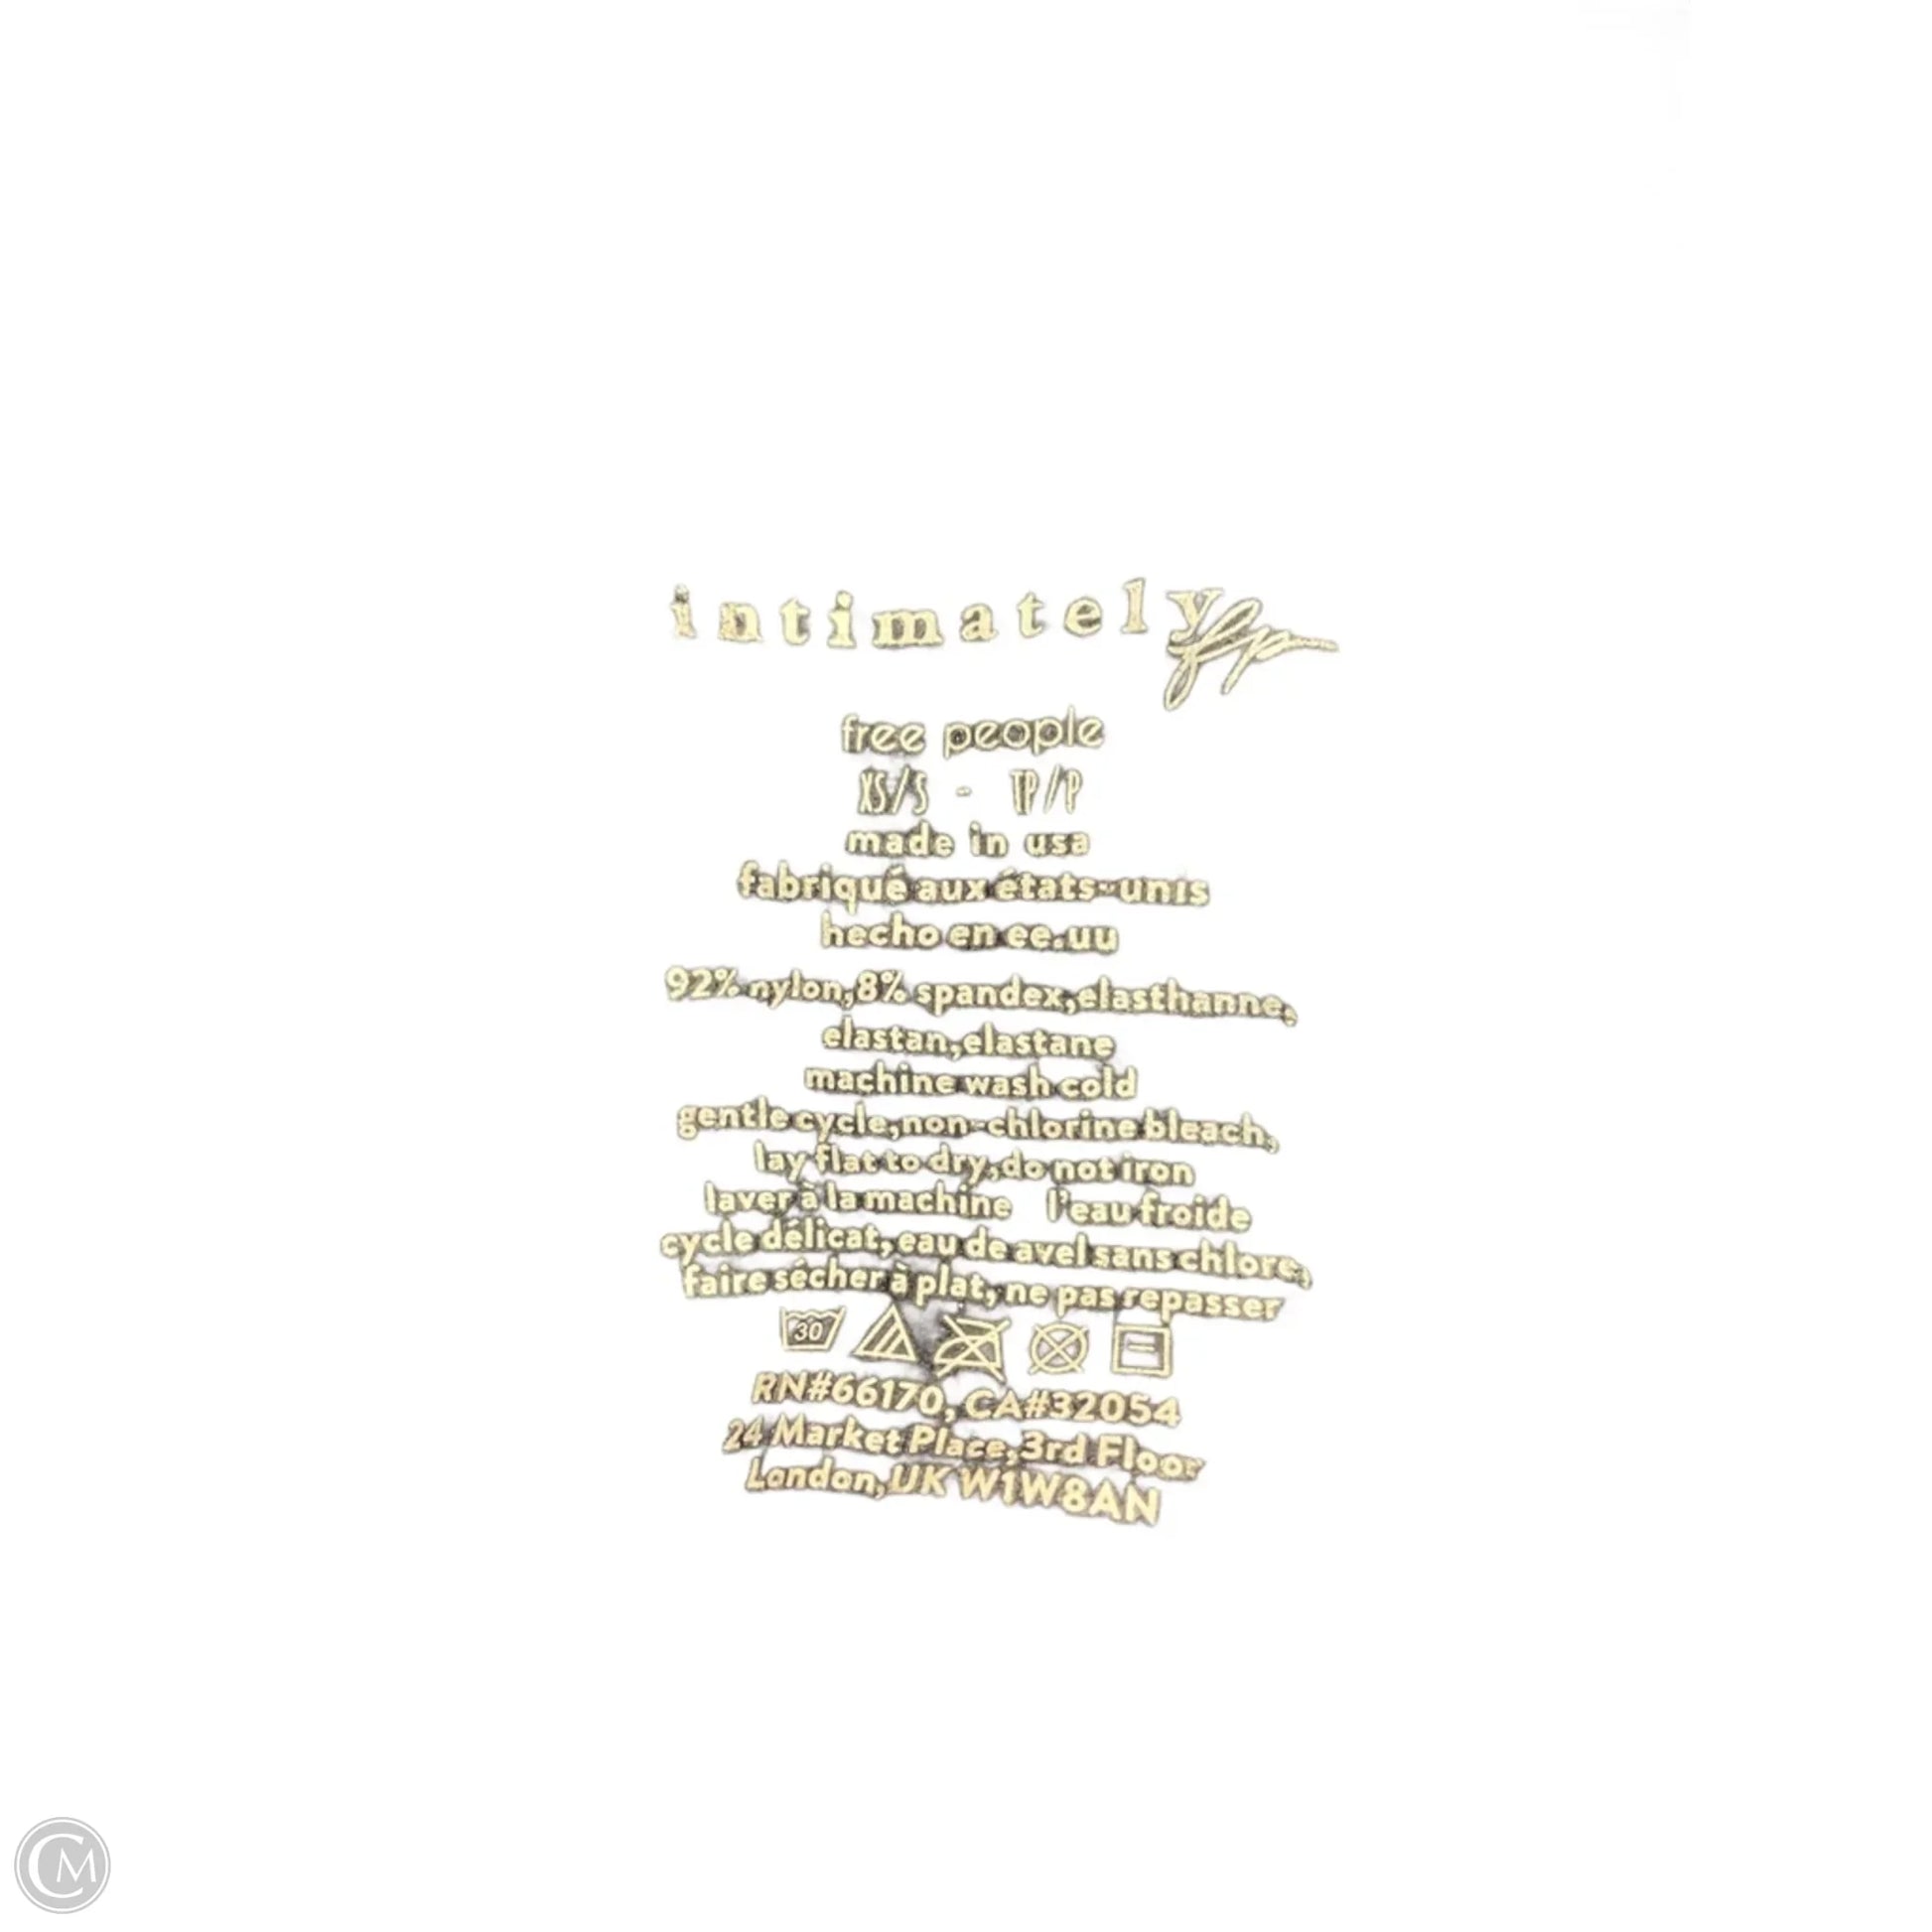 intimately fp
free people
XS/S - TP/P
made in usa
fabriqué aux états-unis
hecho en ee.uu
92% nylon,8% spandex,elasthanne,
elastan,elastane
machine wash cold
gentle cycle,non-chlorine bleach,
lay flat to dry,do not iron
laver à la machine l'eau froide
cycle délicat,eau de avel sans chlore,
faire sécher à plat,ne pas repasser
30
RN#66170, CA#32054
24 Market Place,3rd Floor
London,UK W1W8AN
CM